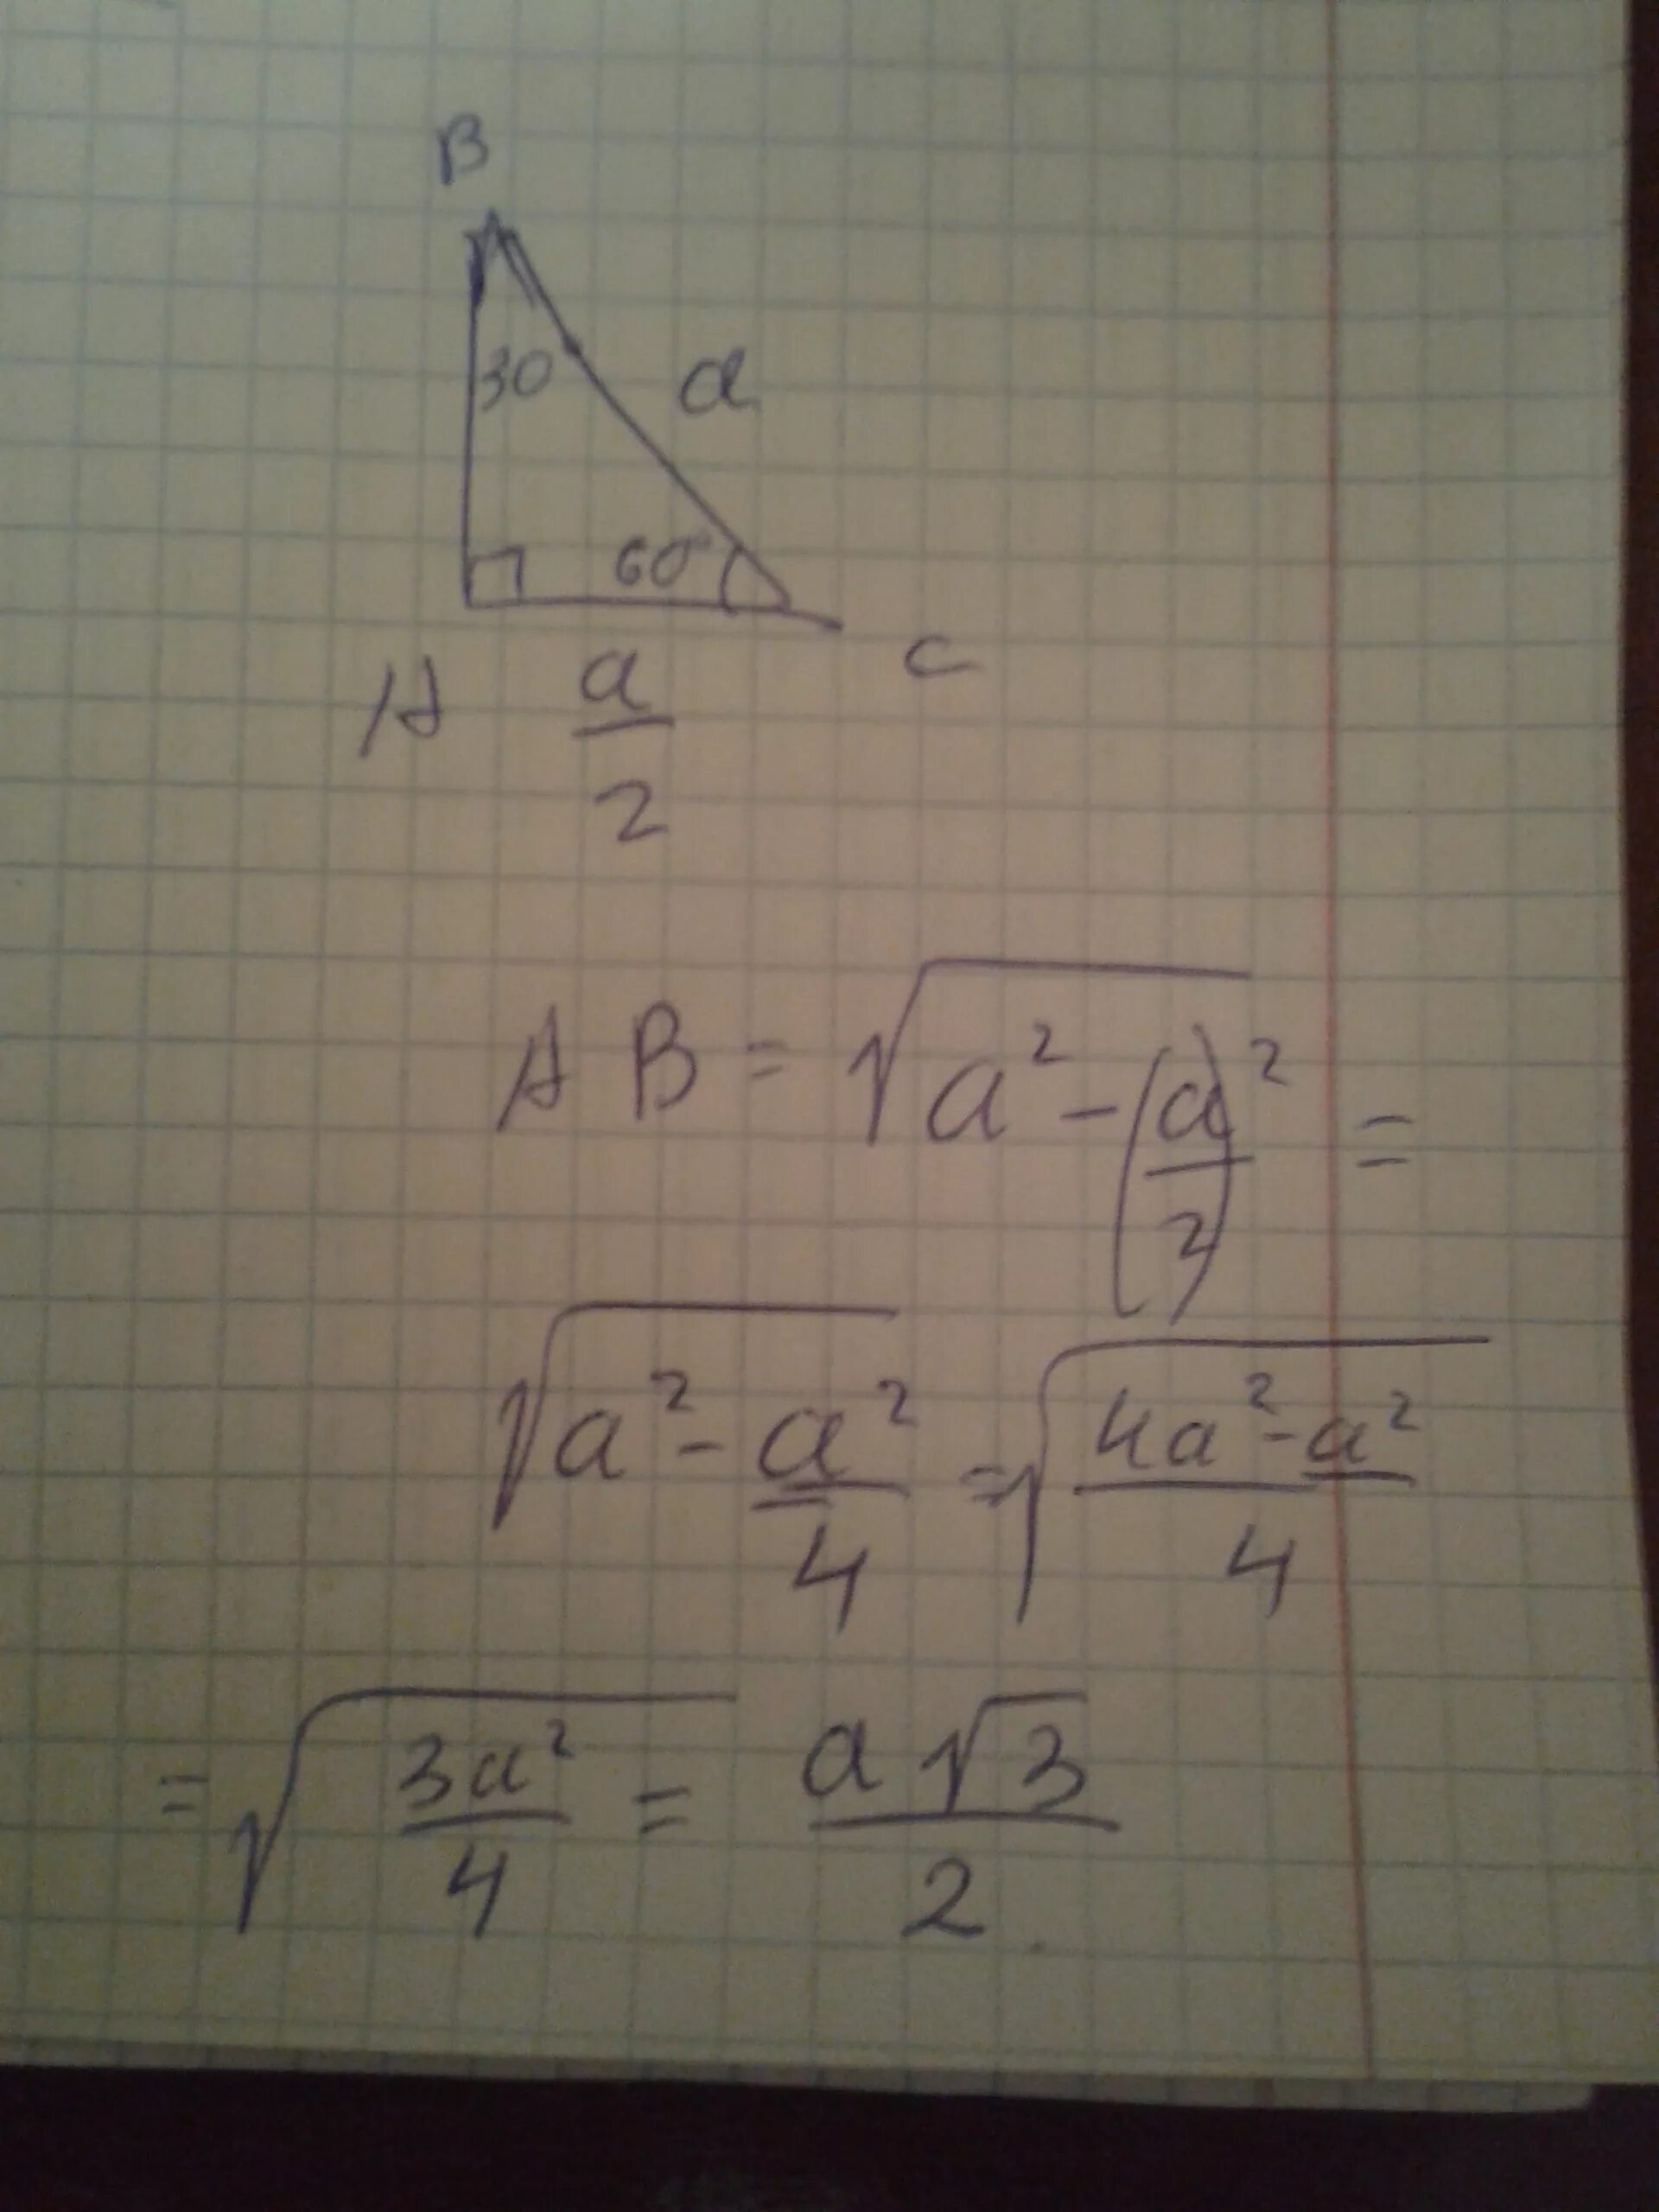 B
30 a
60°
A a/2 C
AB = √(a² - (a/2)²) =
√(a² - a²/4) = √((4a² - a²)/4)
= √(3a²/4) = a√3/2.